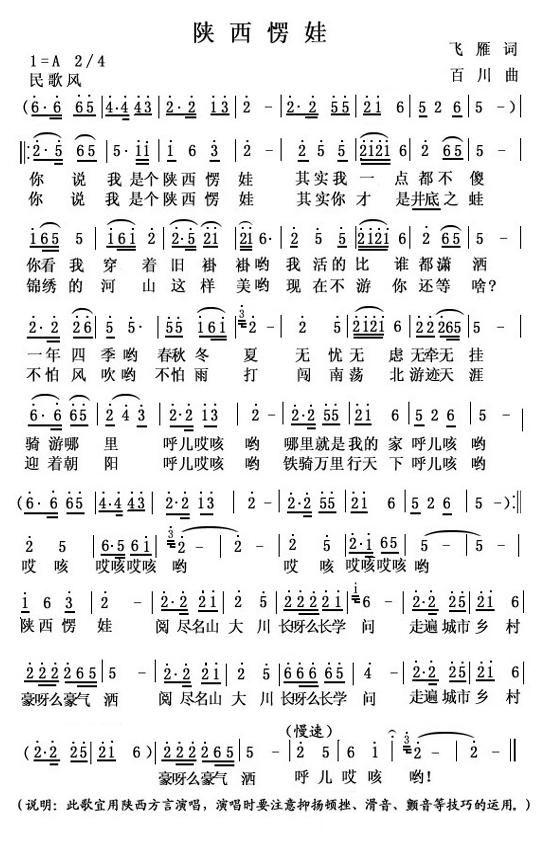 陕西愣娃
1=A 2/4
飞雁词
民歌风
百川曲
(6·6 65 | 4·4 43 | 2·2 13 | 2 - | 2·2 55 | 21 6 | 5 2 6 | 5 - )
2·5 65 | 5·11 | 1 6 3 | 2 - | 2 5 5 | 2121 6 | 2 5 5 | 2 -
你说我是个陕西愣娃 其实我一点都不傻
你说我是个陕西愣娃 其实你才是井底之蛙
165 5 | 161 2 | 2·5 21 | 21 6· | 2 5 5 | 2121 6 | 2 5 5 | 2 -
你看我穿着旧褂褂哟我活的比谁都潇洒
锦绣的河山这样美哟现在不游你还等啥?
2·2 26 | 5 5· | 55 161 | 3 2 - | 2 5 | 2121 6 | 22265 | 5 -
一年四季哟春秋冬夏 无忧无虑无牵无挂
不怕风吹哟不怕雨打 闯南荡北游迹天涯
6·6 65 | 2 4 3 | 2·2 13 | 2 - | 2·2 55 | 21 6 | 5 2 6 | 5 -
骑游哪里 呼儿哎咳哟 哪里就是我的家呼儿咳哟
迎着朝阳 呼儿哎咳哟 铁骑万里行天下呼儿咳哟
(6·6 65 | 4·4 43 | 2·2 13 | 2 - | 2·2 55 | 21 6 | 5 2 6 | 5 - ):
2 5 | 6·5 61 | 3 2 - | 2 - | 2 5 | 2·1 65 | 5 - | 5 -
哎咳哎咳哎咳哟 哎咳哎咳哎咳哟
1 6 3 | 2 - | 2·2 21 | 2 5 | 2222 21 | 6 - | 2·2 25 | 21 6
陕西愣娃 阅尽名山大川长呀么长学问 走遍城市乡村
222265 | 5 - | 2·2 21 | 2 5 | 222221 | 6 - | 2·2 25 | 21 6
豪呀么豪气洒 阅尽名山大川长呀么长学问 走遍城市乡村
(慢速)
(2·2 25 | 21 6) | 2222 65 | 2 5 | 6 1 | 3 2 - | 2 - ‖
豪呀么豪气洒 呼儿哎咳哟!
(说明:此歌宜用陕西方言演唱,演唱时要注意抑扬顿挫、滑音、颤音等技巧的运用。)